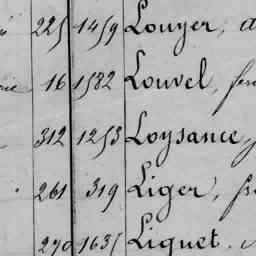 225 1459 Louyer,
16 1582 Louvel,
312 1253 Loysance,
261 319 Liger,
290 1635 Liquet.